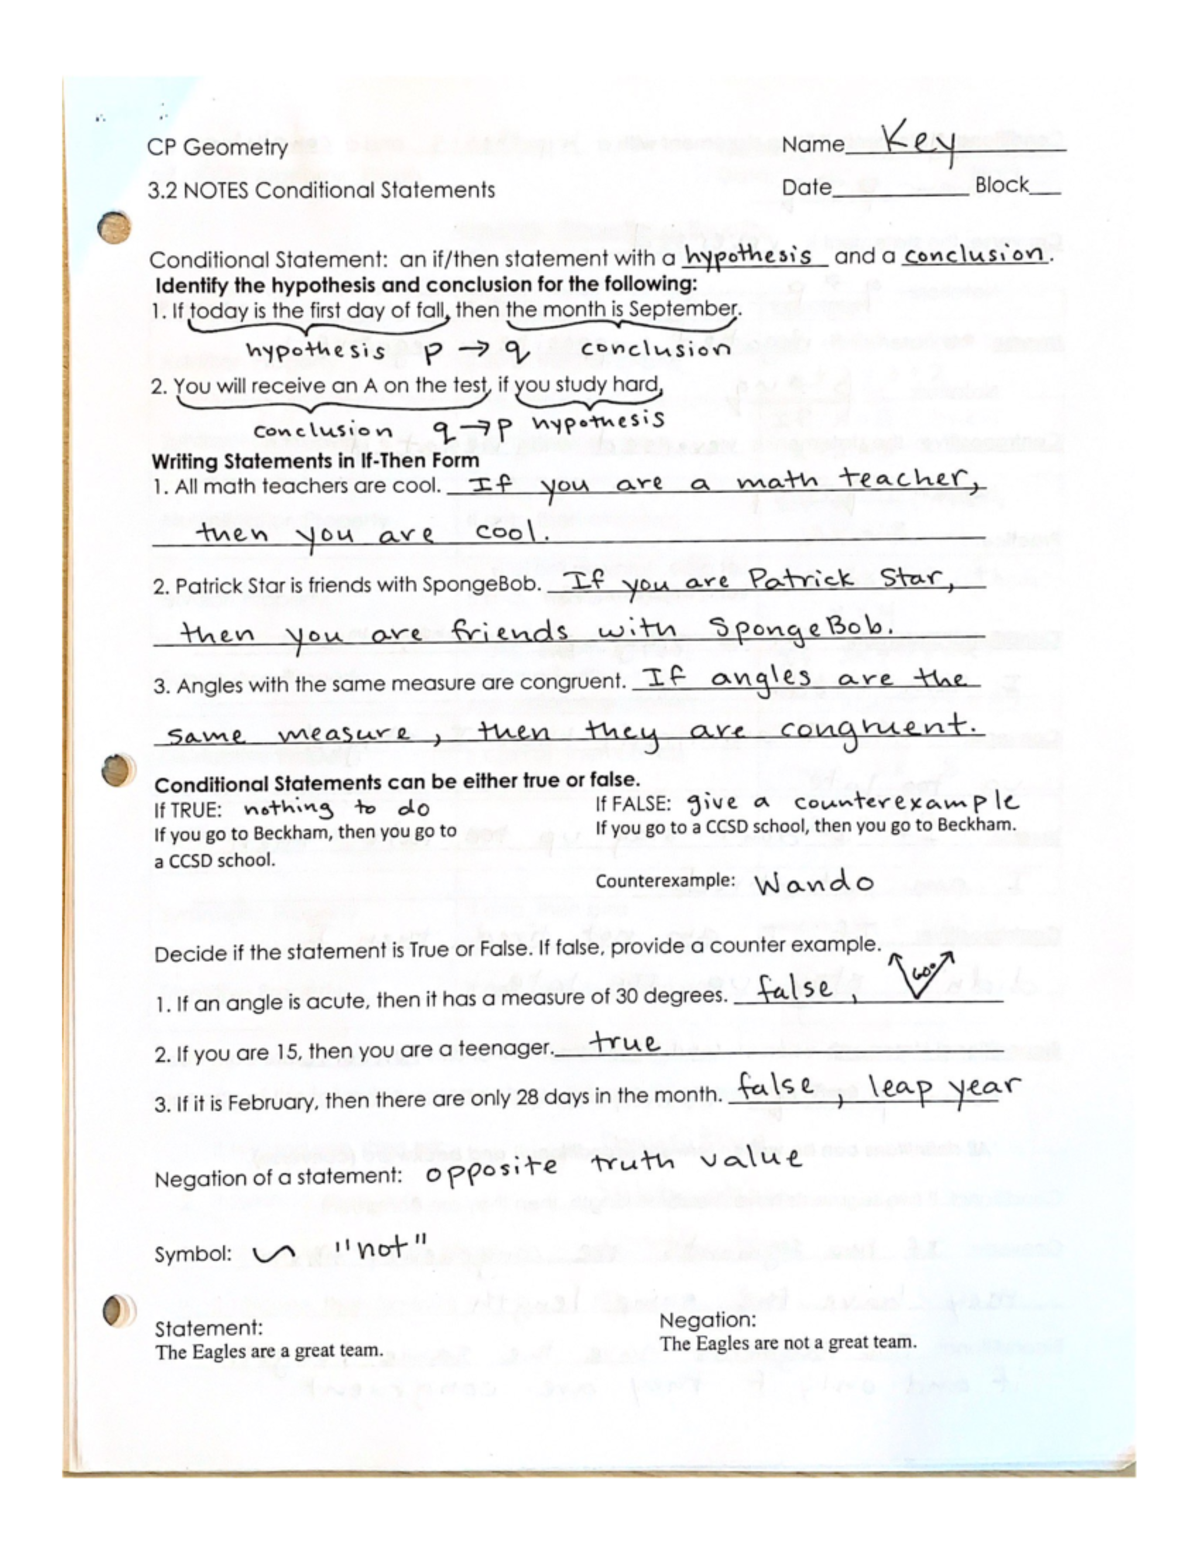 CP Geometry
Name Key
3.2 NOTES Conditional Statements
Date Block
Conditional Statement: an if/then statement with a hypothesis and a conclusion.
Identify the hypothesis and conclusion for the following:
1. If today is the first day of fall, then the month is September.
hypothesis p → q conclusion
2. You will receive an A on the test, if you study hard.
conclusion q → p hypothesis
Writing Statements in If-Then Form
1. All math teachers are cool. If you are a math teacher,
then you are cool.
2. Patrick Star is friends with SpongeBob. If you are Patrick Star,
then you are friends with SpongeBob.
3. Angles with the same measure are congruent. If angles are the
same measure, then they are congruent.
Conditional Statements can be either true or false.
If TRUE: nothing to do
If you go to Beckham, then you go to
a CCSD school.
If FALSE: give a counterexample
If you go to a CCSD school, then you go to Beckham.
Counterexample: Wando
Decide if the statement is True or False. If false, provide a counter example.
1. If an angle is acute, then it has a measure of 30 degrees. false, 60°
2. If you are 15, then you are a teenager. true
3. If it is February, then there are only 28 days in the month. false, leap year
Negation of a statement: opposite truth value
Symbol: ~ "not"
Statement:
The Eagles are a great team.
Negation:
The Eagles are not a great team.